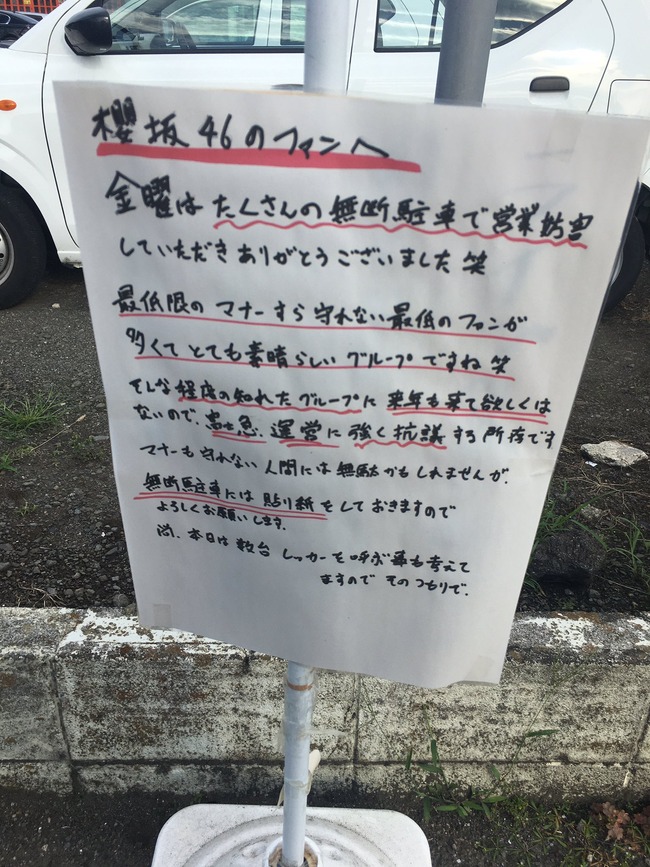 櫻坂46のファンへ
金曜は たくさんの 無断駐車で営業妨害
していただき ありがとうございました 笑
最低限の マナーすら 守れない 最低の ファンが
多くて とても素晴らしい グループ ですね 笑
そんな 程度の知れた グループに 来年も来て欲しくは
ないので、富士急 運営に 強く抗議 する 所存です
マナーも 守れない 人間には 無駄かもしれませんが、
無断駐車には 貼り紙をしておきますので
よろしくお願いします。
尚、本日は 数台 レッカーを 呼ぶ事も考えて
ますので そのつもりで。